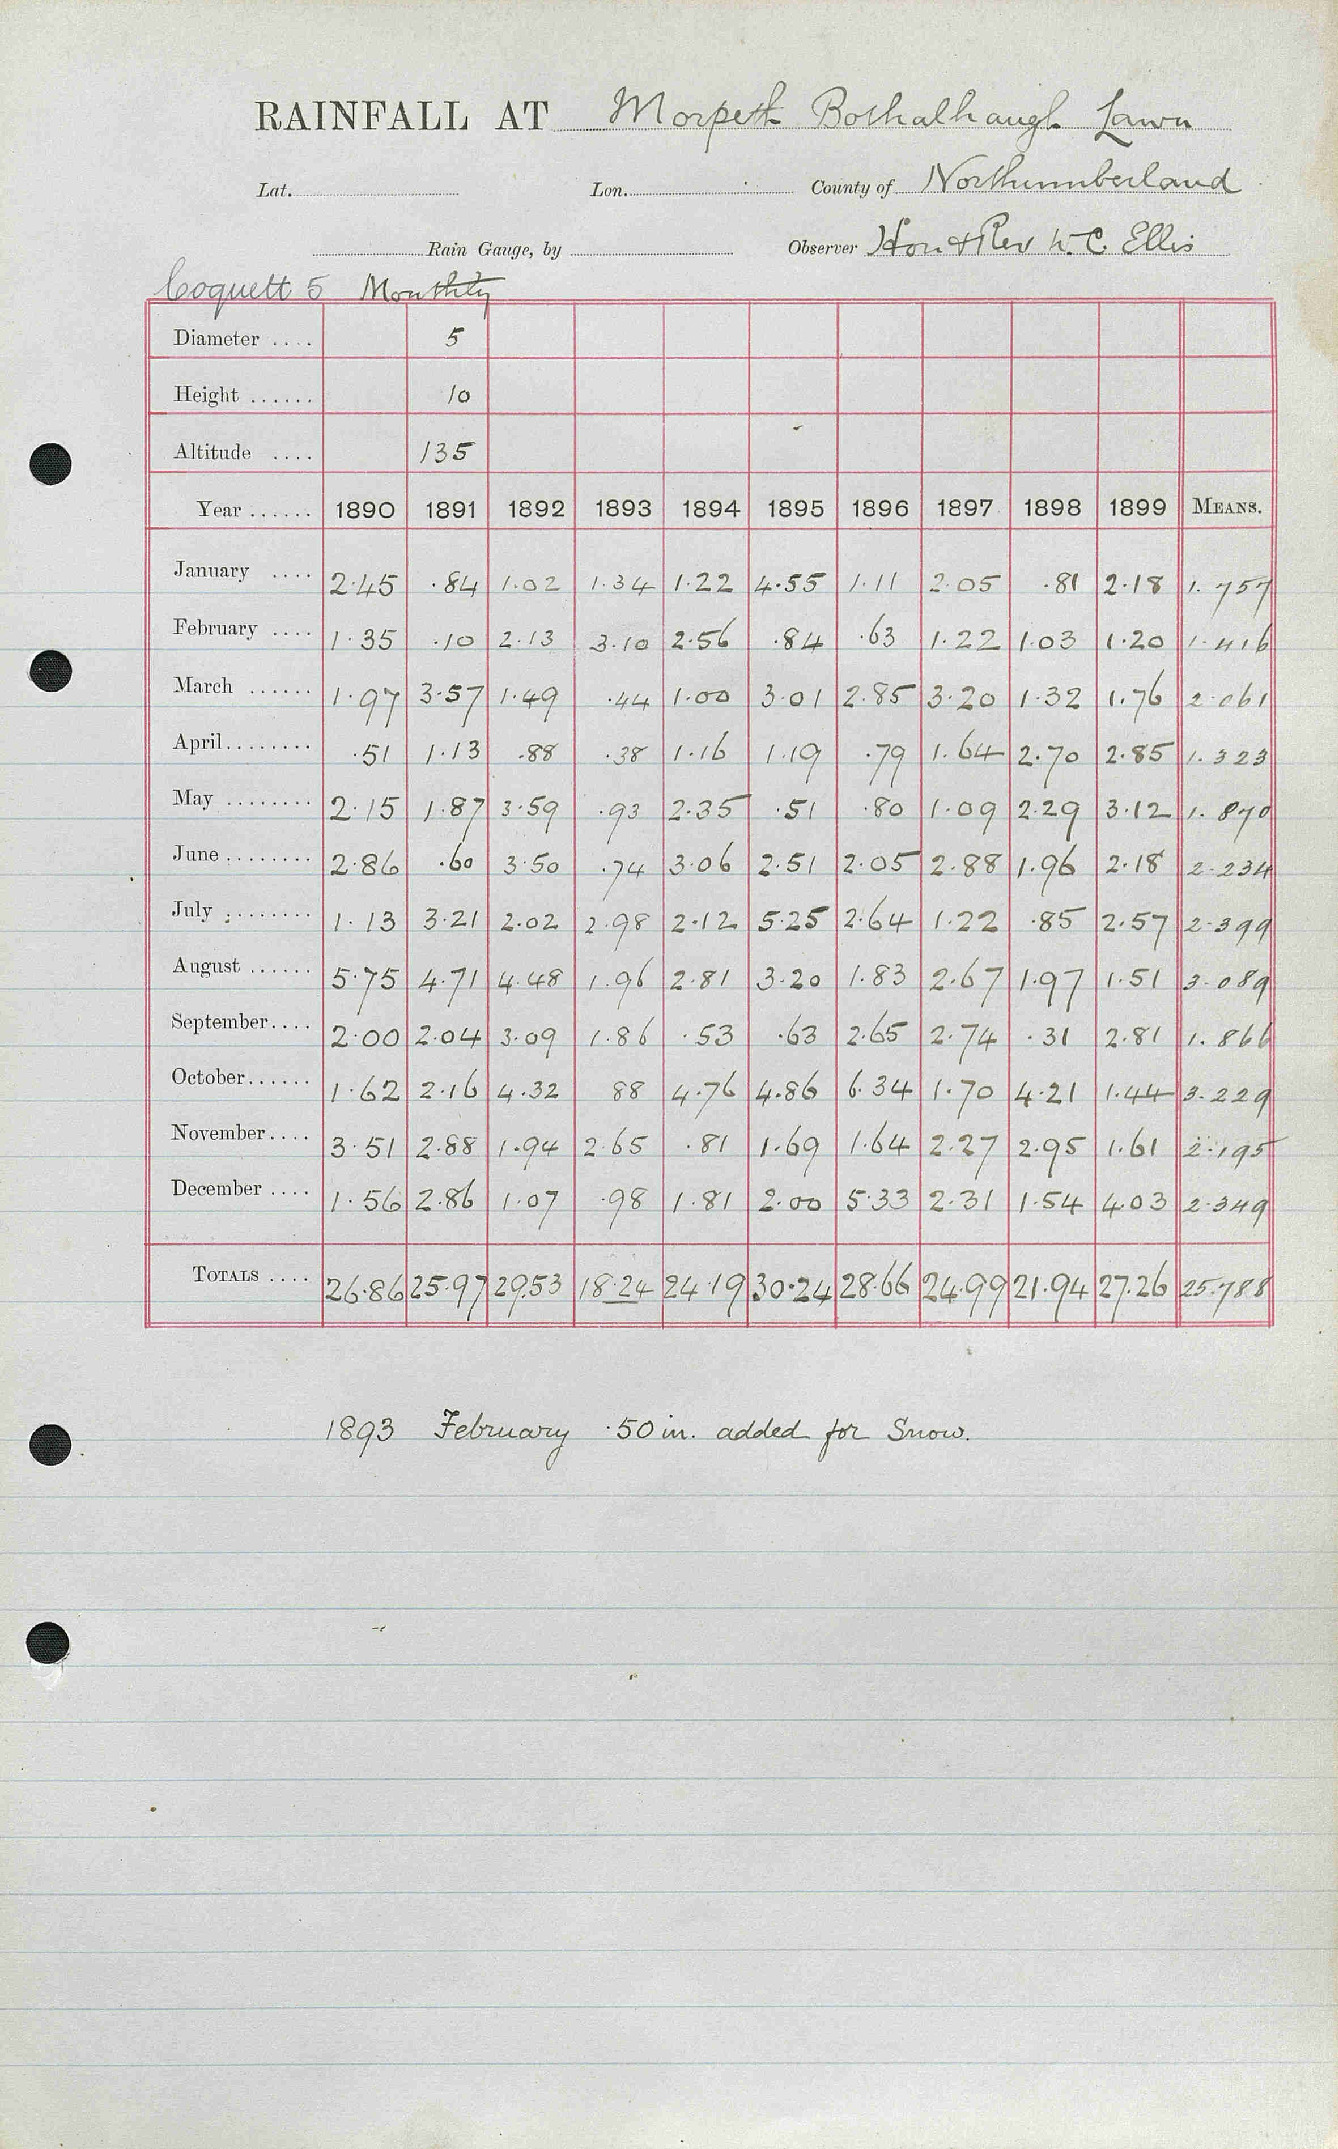 RAINFALL AT Morpeth Bothalhaugh Lawn
Lat. Lon. County of Northumberland
Rain Gauge, by Observer Hon & Rev W. C. Ellis
Coquett 5 Monthly
Diameter .... 5
Height ...... 10
Altitude .... 135
Year ...... 1890 1891 1892 1893 1894 1895 1896 1897 1898 1899 MEANS.
January .... 2.45 .84 1.02 1.34 1.22 4.55 1.11 2.05 .81 2.18 1.757
February .... 1.35 .10 2.13 3.10 2.56 .84 .63 1.22 1.03 1.20 1.416
March ...... 1.97 3.57 1.49 .44 1.00 3.01 2.85 3.20 1.32 1.76 2.061
April........ .51 1.13 .88 .38 1.16 1.19 .79 1.64 2.70 2.85 1.323
May ........ 2.15 1.87 3.59 .93 2.35 .51 .80 1.09 2.29 3.12 1.870
June ........ 2.86 .60 3.50 .74 3.06 2.51 2.05 2.88 1.96 2.18 2.234
July ........ 1.13 3.21 2.02 2.98 2.12 5.25 2.64 1.22 .85 2.57 2.399
August ...... 5.75 4.71 4.48 1.96 2.81 3.20 1.83 2.67 1.97 1.51 3.089
September.... 2.00 2.04 3.09 1.86 .53 .63 2.65 2.74 .31 2.81 1.866
October...... 1.62 2.16 4.32 88 4.76 4.86 6.34 1.70 4.21 1.44 3.229
November.... 3.51 2.88 1.94 2.65 .81 1.69 1.64 2.27 2.95 1.61 2.195
December .... 1.56 2.86 1.07 .98 1.81 2.00 5.33 2.31 1.54 4.03 2.349
TOTALS .... 26.86 25.97 29.53 18.24 24.19 30.24 28.66 24.99 21.94 27.26 25.788
1893 February .50 in. added for Snow.